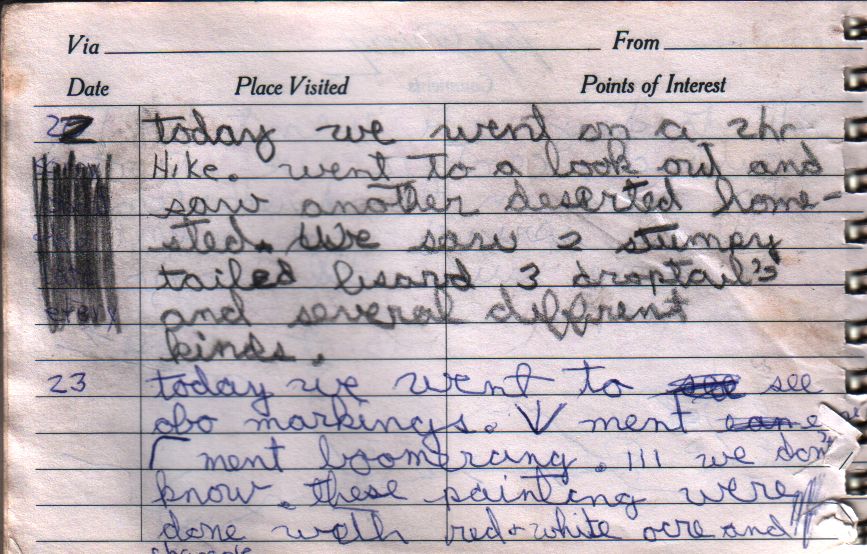 Via From
Date Place Visited Points of Interest
22 today we went on a 2hr
Hike. went to a look out and
saw another deserted home-
sted. We saw 2 stumpy
tailed lisard 3 droptail's
and several diffrent
kinds.
23 today we went to see see
abo markings. V ment
ment boomerang. 111 we don't
know. these painting were
done with red+white ocre and